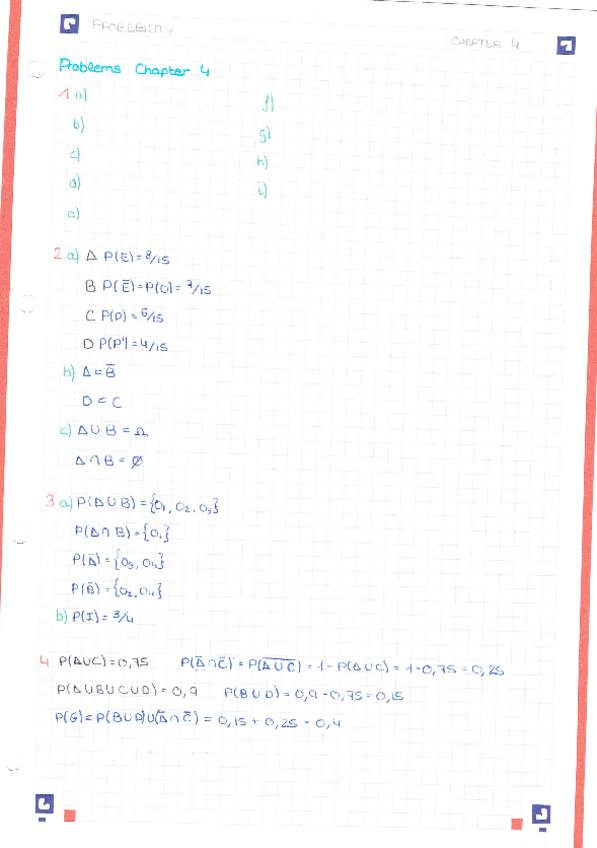 PROBABILITY
CHAPTER 4
Problems Chapter 4
1 a)
b)
c)
d)
e)
f)
g)
h)
i)
2 a) A P(E) = 8/15
B P(Ē) = P(O) = 7/15
C P(P) = 6/15
D P(P') = 4/15
b) A = B̅
D ⊂ C
c) A ∪ B = Ω
A ∩ B = ∅
3 a) P(A ∪ B) = {O₁, O₂, O₃}
P(A ∩ B) = {O₁}
P(A̅) = {O₃, O₄}
P(B̅) = {O₂, O₄}
b) P(I) = 3/4
4 P(A∪C) = 0,75 P(A̅ ∩ C̅) = P(A̅ ̅∪̅ ̅C̅) = 1 - P(A∪C) = 1 - 0,75 = 0,25
P(A∪B∪C∪D) = 0,9 P(B∪D) = 0,9 - 0,75 = 0,15
P(G) = P(B∪D)∪(A̅ ∩ C̅) = 0,15 + 0,25 = 0,4